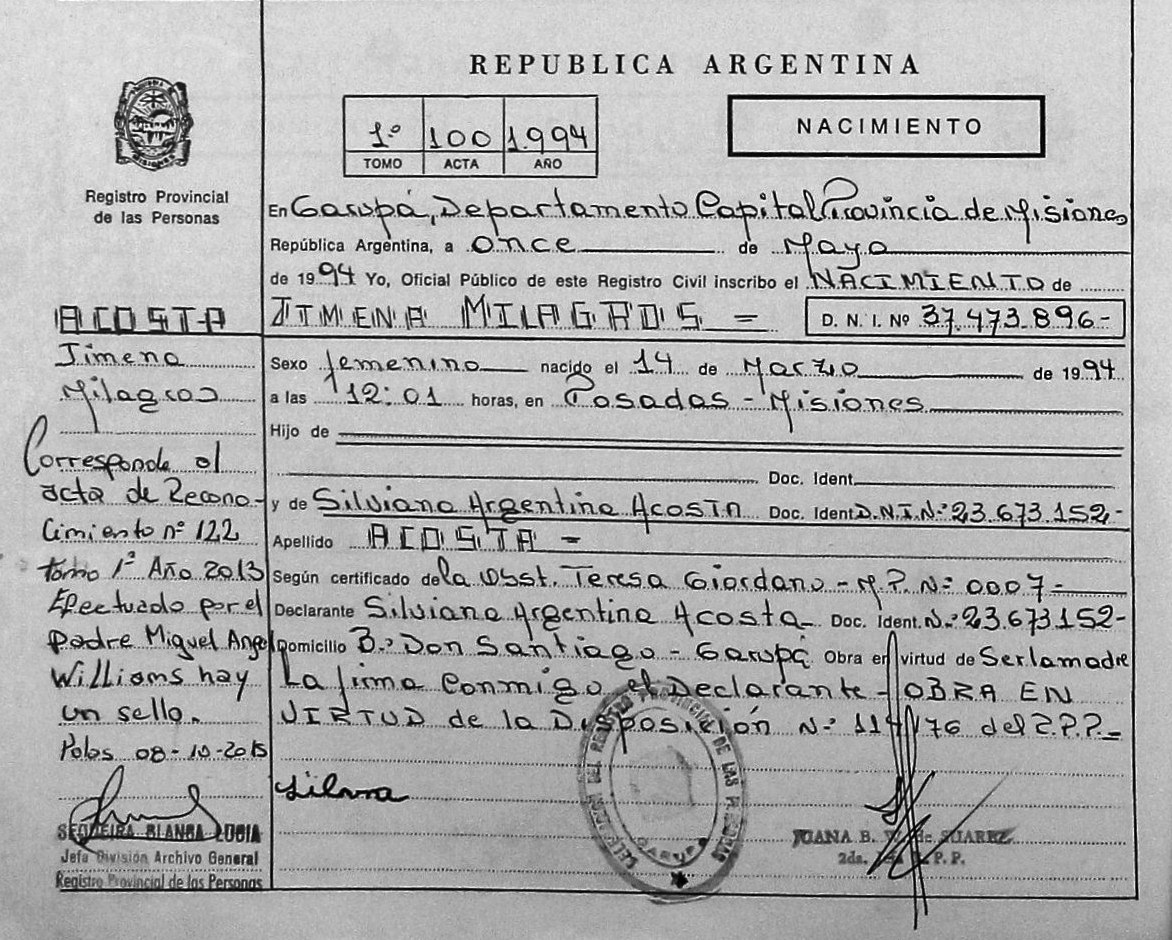 REPUBLICA ARGENTINA
1º 100 1.994
TOMO ACTA AÑO
NACIMIENTO
Registro Provincial
de las Personas
En Garupá, Departamento Capital Provincia de Misiones
República Argentina, a once de Mayo
de 1994 Yo, Oficial Público de este Registro Civil inscribo el NACIMIENTO de
JIMENA MILAGROS =
D. N. I. Nº 37.473.896-
Sexo femenino nacido el 14 de Marzo de 1994
a las 12:01 horas, en Posadas - Misiones
Hijo de
Doc. Ident.
y de Silviana Argentina Acosta Doc. Ident. D.N.I.Nº 23.673.152-
Apellido ACOSTA =
Según certificado de la Obst. Teresa Giordano - M.P. Nº 0007-
Declarante Silviana Argentina Acosta Doc. Ident. Nº 23.673.152-
Domicilio Bº Don Santiago - Garupá Obra en virtud de Ser la madre
La firma Conmigo el Declarante - OBRA EN
VIRTUD de la Disposición Nº 114/76 del R.P.P.
Silvana
JUANA B. V. de SUAREZ
2da. P. P.
GARUPA
ACOSTA
Jimena
Milagros
Corresponde al
acta de Recono-
cimiento nº 122
tomo 1º Año 2013
Efectuado por el
padre Miguel Angel
Williams hay
un sello.
Pdas 08-10-2013
SEQUEIRA BLANCA LUCIA
Jefa División Archivo General
Registro Provincial de las Personas